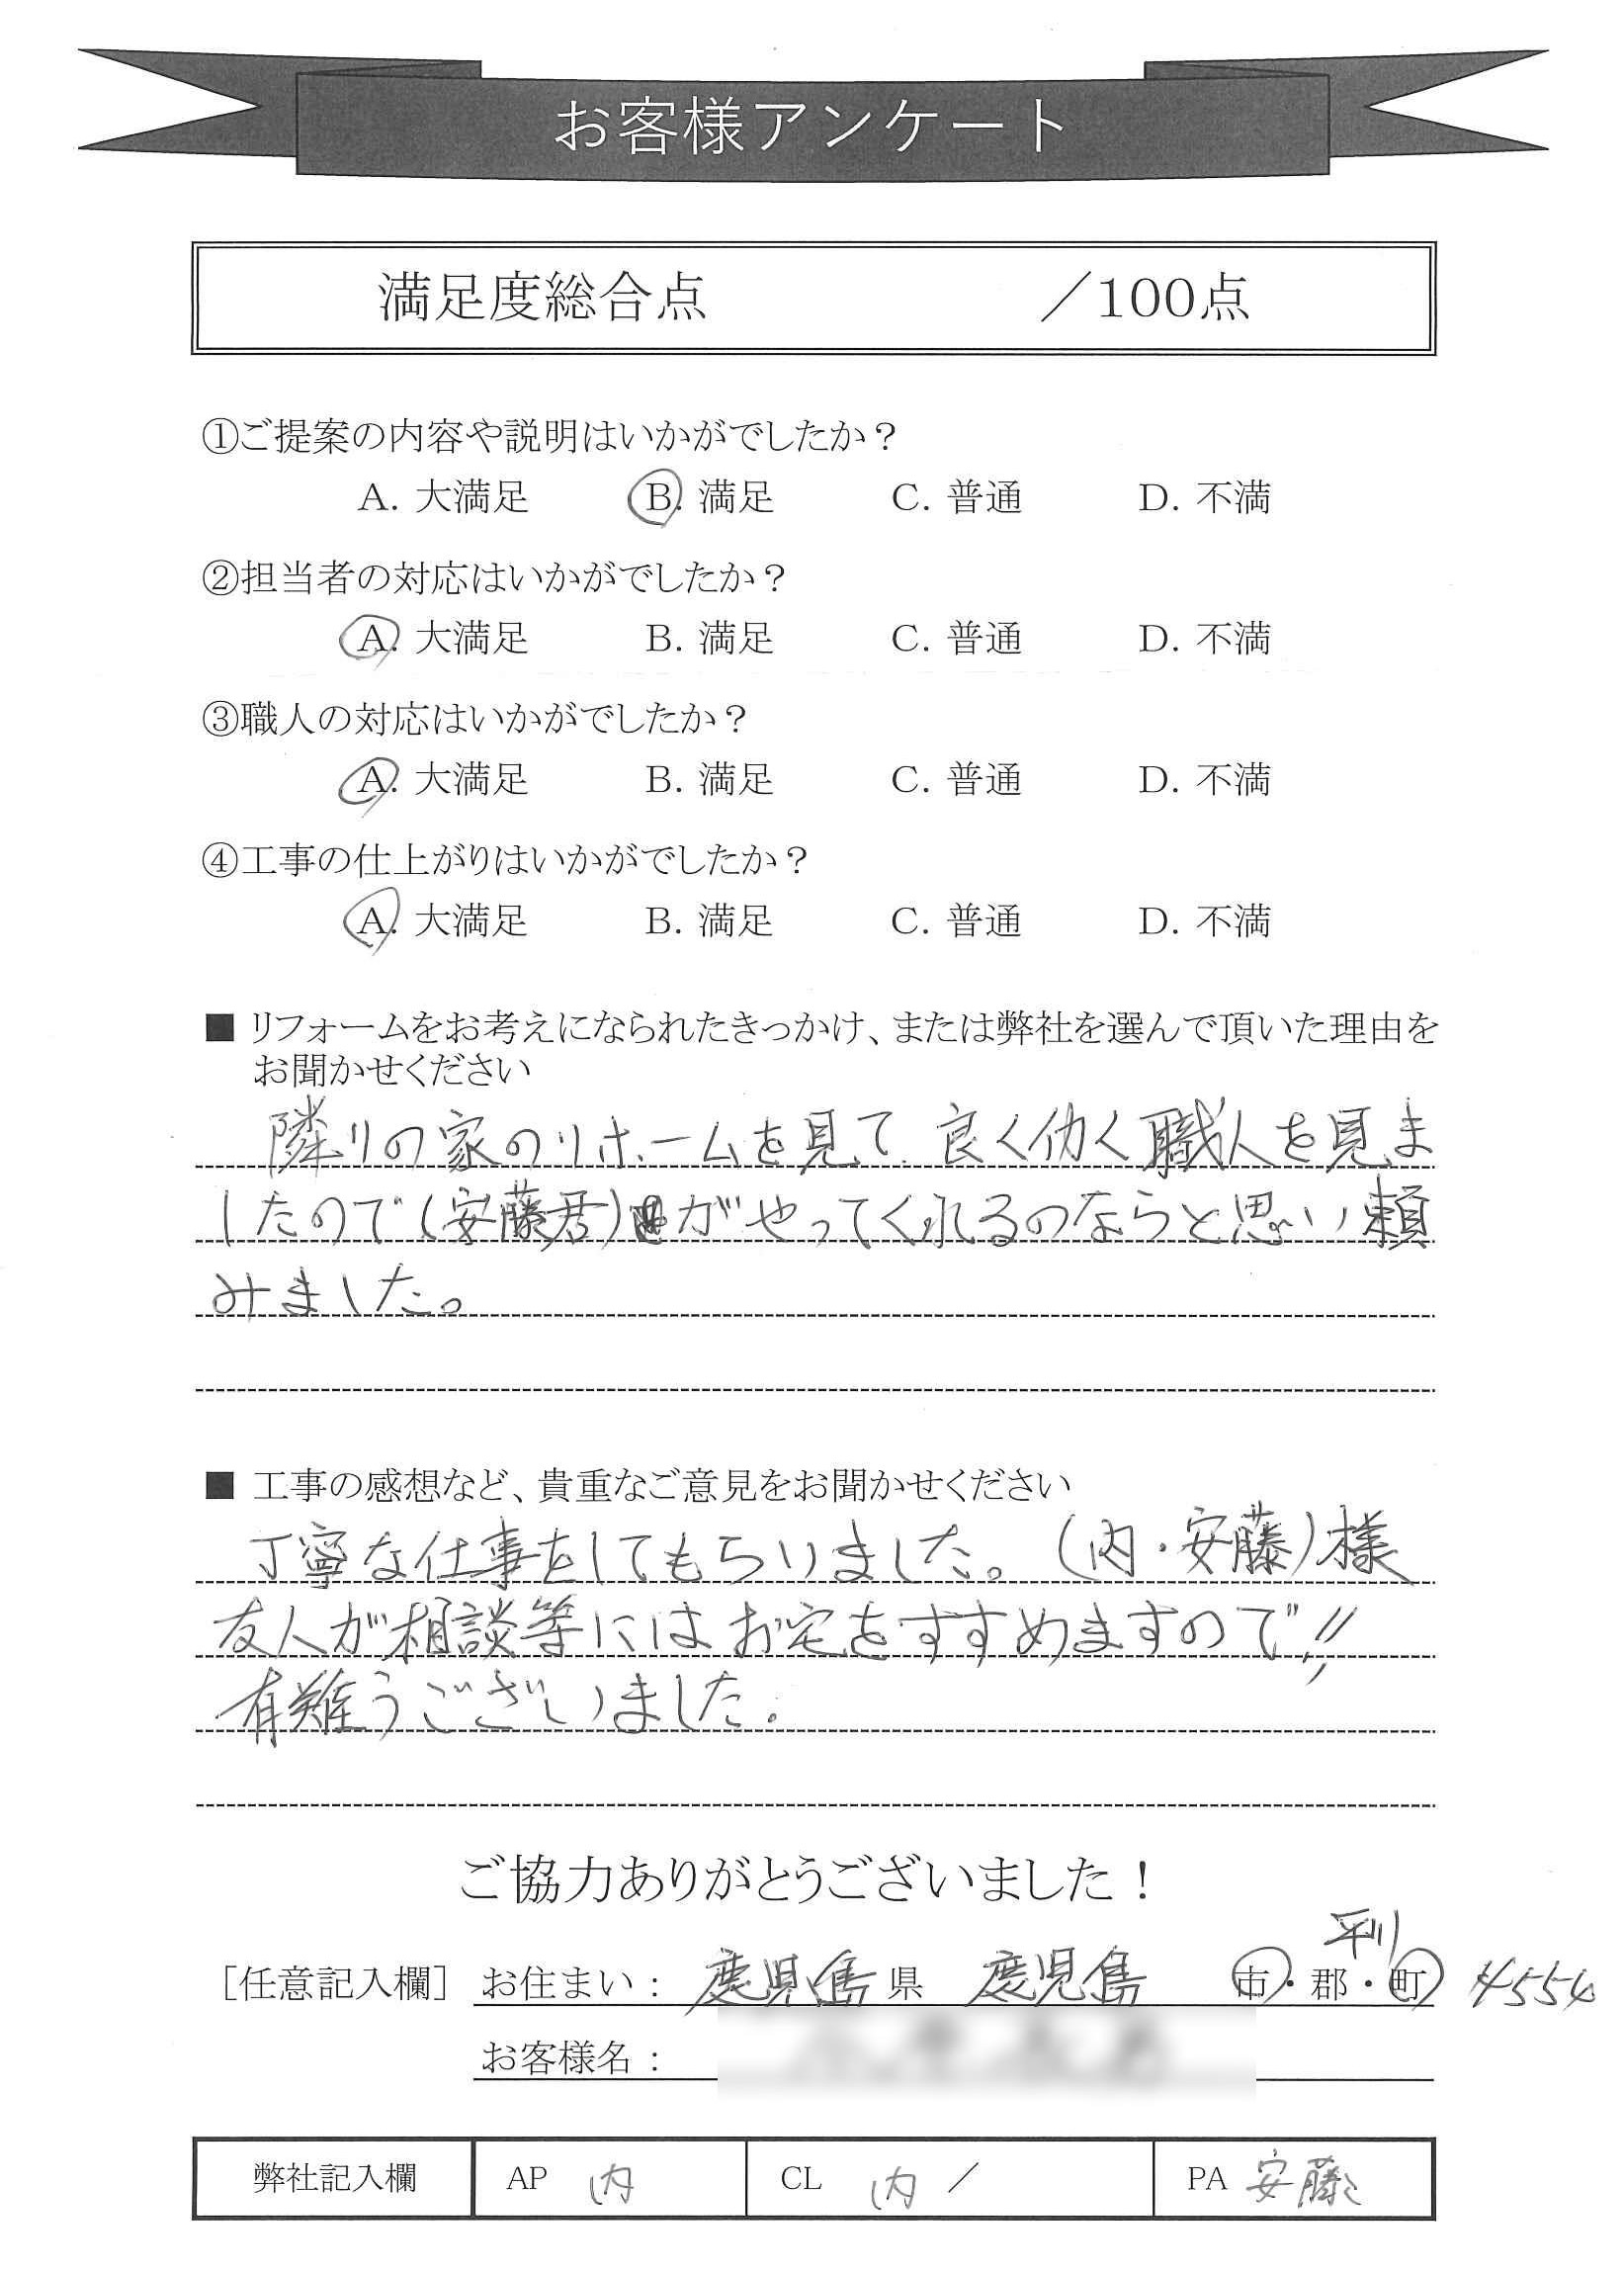 お客様アンケート
満足度総合点 ／100点
①ご提案の内容や説明はいかがでしたか？
A. 大満足 B. 満足 C. 普通 D. 不満
②担当者の対応はいかがでしたか？
A. 大満足 B. 満足 C. 普通 D. 不満
③職人の対応はいかがでしたか？
A. 大満足 B. 満足 C. 普通 D. 不満
④工事の仕上がりはいかがでしたか？
A. 大満足 B. 満足 C. 普通 D. 不満
■ リフォームをお考えになられたきっかけ、または弊社を選んで頂いた理由を
お聞かせください
隣りの家のリホームを見て 良く仂く職人を見ま
したので(安藤君)がやってくれるのならと思い頼
みました。
■ 工事の感想など、貴重なご意見をお聞かせください
丁寧な仕事をしてもらいました。(内・安藤)様
友人が相談等にはお宅をすすめますので!!
有難うございました.
ご協力ありがとうございました！
平川
［任意記入欄］ お住まい： 鹿児島 県 鹿児島 市・郡・町 4554
お客様名：
弊社記入欄 AP 内 CL 内 ／ PA 安藤